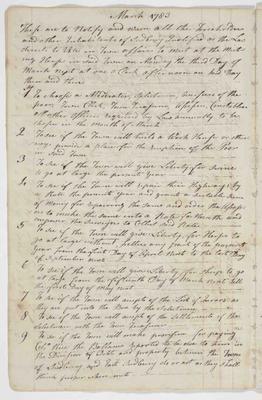 March 1783
These are to Notify and warn all the Freeholders
and other Inhabitants of Sudbury Qualified as the Law
directs to Vote in Town affairs to meet at the Meet
ing House in said Town on Monday the third Day of
March next at one o'Clock afternoon on said Day
then and there
1 To choose a Moderator, Selectmen, Overseers of the
poor, Town Clerk, Town Treasurer, Assessors, Constables
all other Officers required by Law annually to be
chosen in the month of March
2 To see if the Town will build a Work House or other
ways provide a place for the reception of the Poor
in said Town
3 To see if the Town will give Liberty for Swine
to go at large the present year
4 To see if the Town will repair their Highways by
a Rate the present year and grant a sum
of Money for repairing the same and order the Assess
ors to make the same into a Rate for the
Surveyors to Collect said Rates
5 To see if the Town will give Liberty for Horses to
go at large without fetters any part of the present
year from the first Day of April next to the last Day
of September next
6 To see if the Town will give Liberty for sheep to go
at large from the fifteenth Day of March next till
the first Day of May next
7 To see if the Town will accept of the List of Jurors as
it is reported to the Town by the Selectmen
8 To see if the Town will accept of the Settlements of the
Selectmen with the Town Treasurer
9 To see if the Town will make provision for paying
Col. Rice the Ballance reported to be due to him in
the Division of Debts and property between the Towns
of Sudbury and East Sudbury do or act as they shall
think proper when met